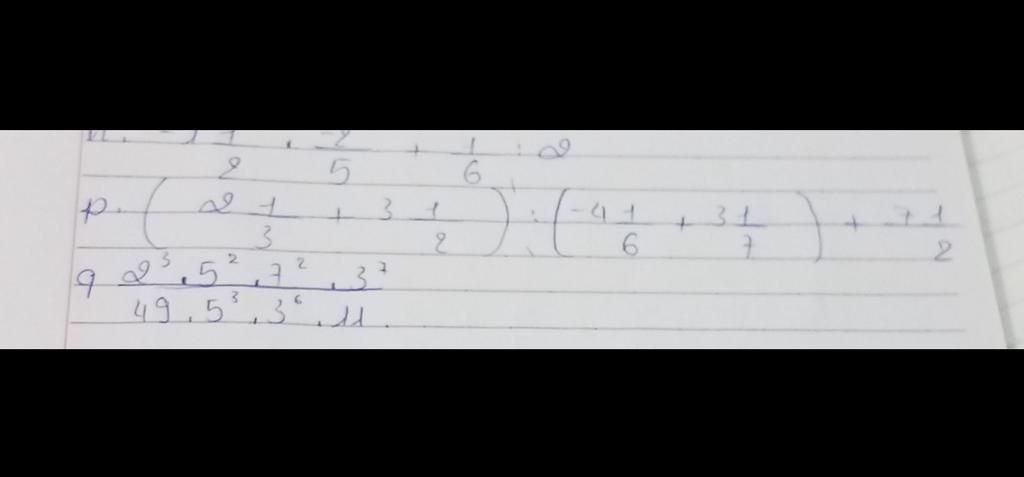 1/2 . -2/5 + 1/6 : 2
p. (2 1/3 + 3 1/2) : (-4 1/6 + 3 1/7) + 7 1/2
q 2³ . 5² . 7² . 3⁷ / 49 . 5³ . 3⁶ . 11